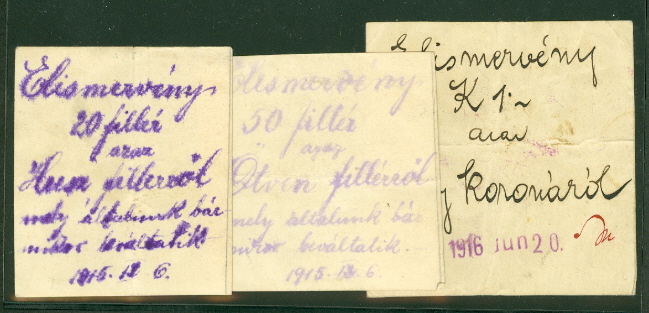 Elismervény
20 fillér
azaz
Husz fillérről
mely általunk bár-
mikor beváltatik
1915. IX 6.
Elismervény
50 fillér
azaz
Ötven fillérről
mely általunk bár
mikor beváltatik.
1915. IX 6.
Elismervény
K 1.-
azaz
koronáról
1916 JUN 20.